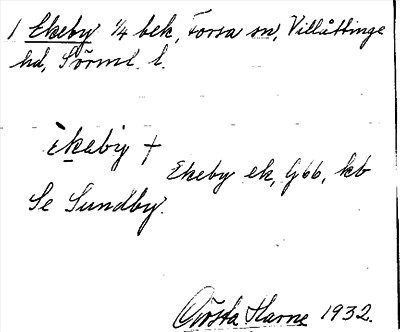 1 Ekeby 1/4 bek, Forsa sn, Villåttinge
hd, Sörml. l.
Ekeby +
Ekeby ek, G66, kb
Se Sundby.
Gösta Harne 1932.